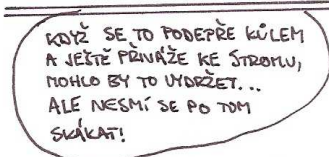 KDYŽ SE TO PODEPŘE KŮLEM
A JEŠTĚ PŘIVÁŽE KE STROMU,
MOHLO BY TO VYDRŽET...
ALE NESMÍ SE PO TOM
SKÁKAT!